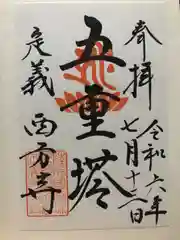 奉拝
令和六年
七月十三日
五重塔
定義
西方寺